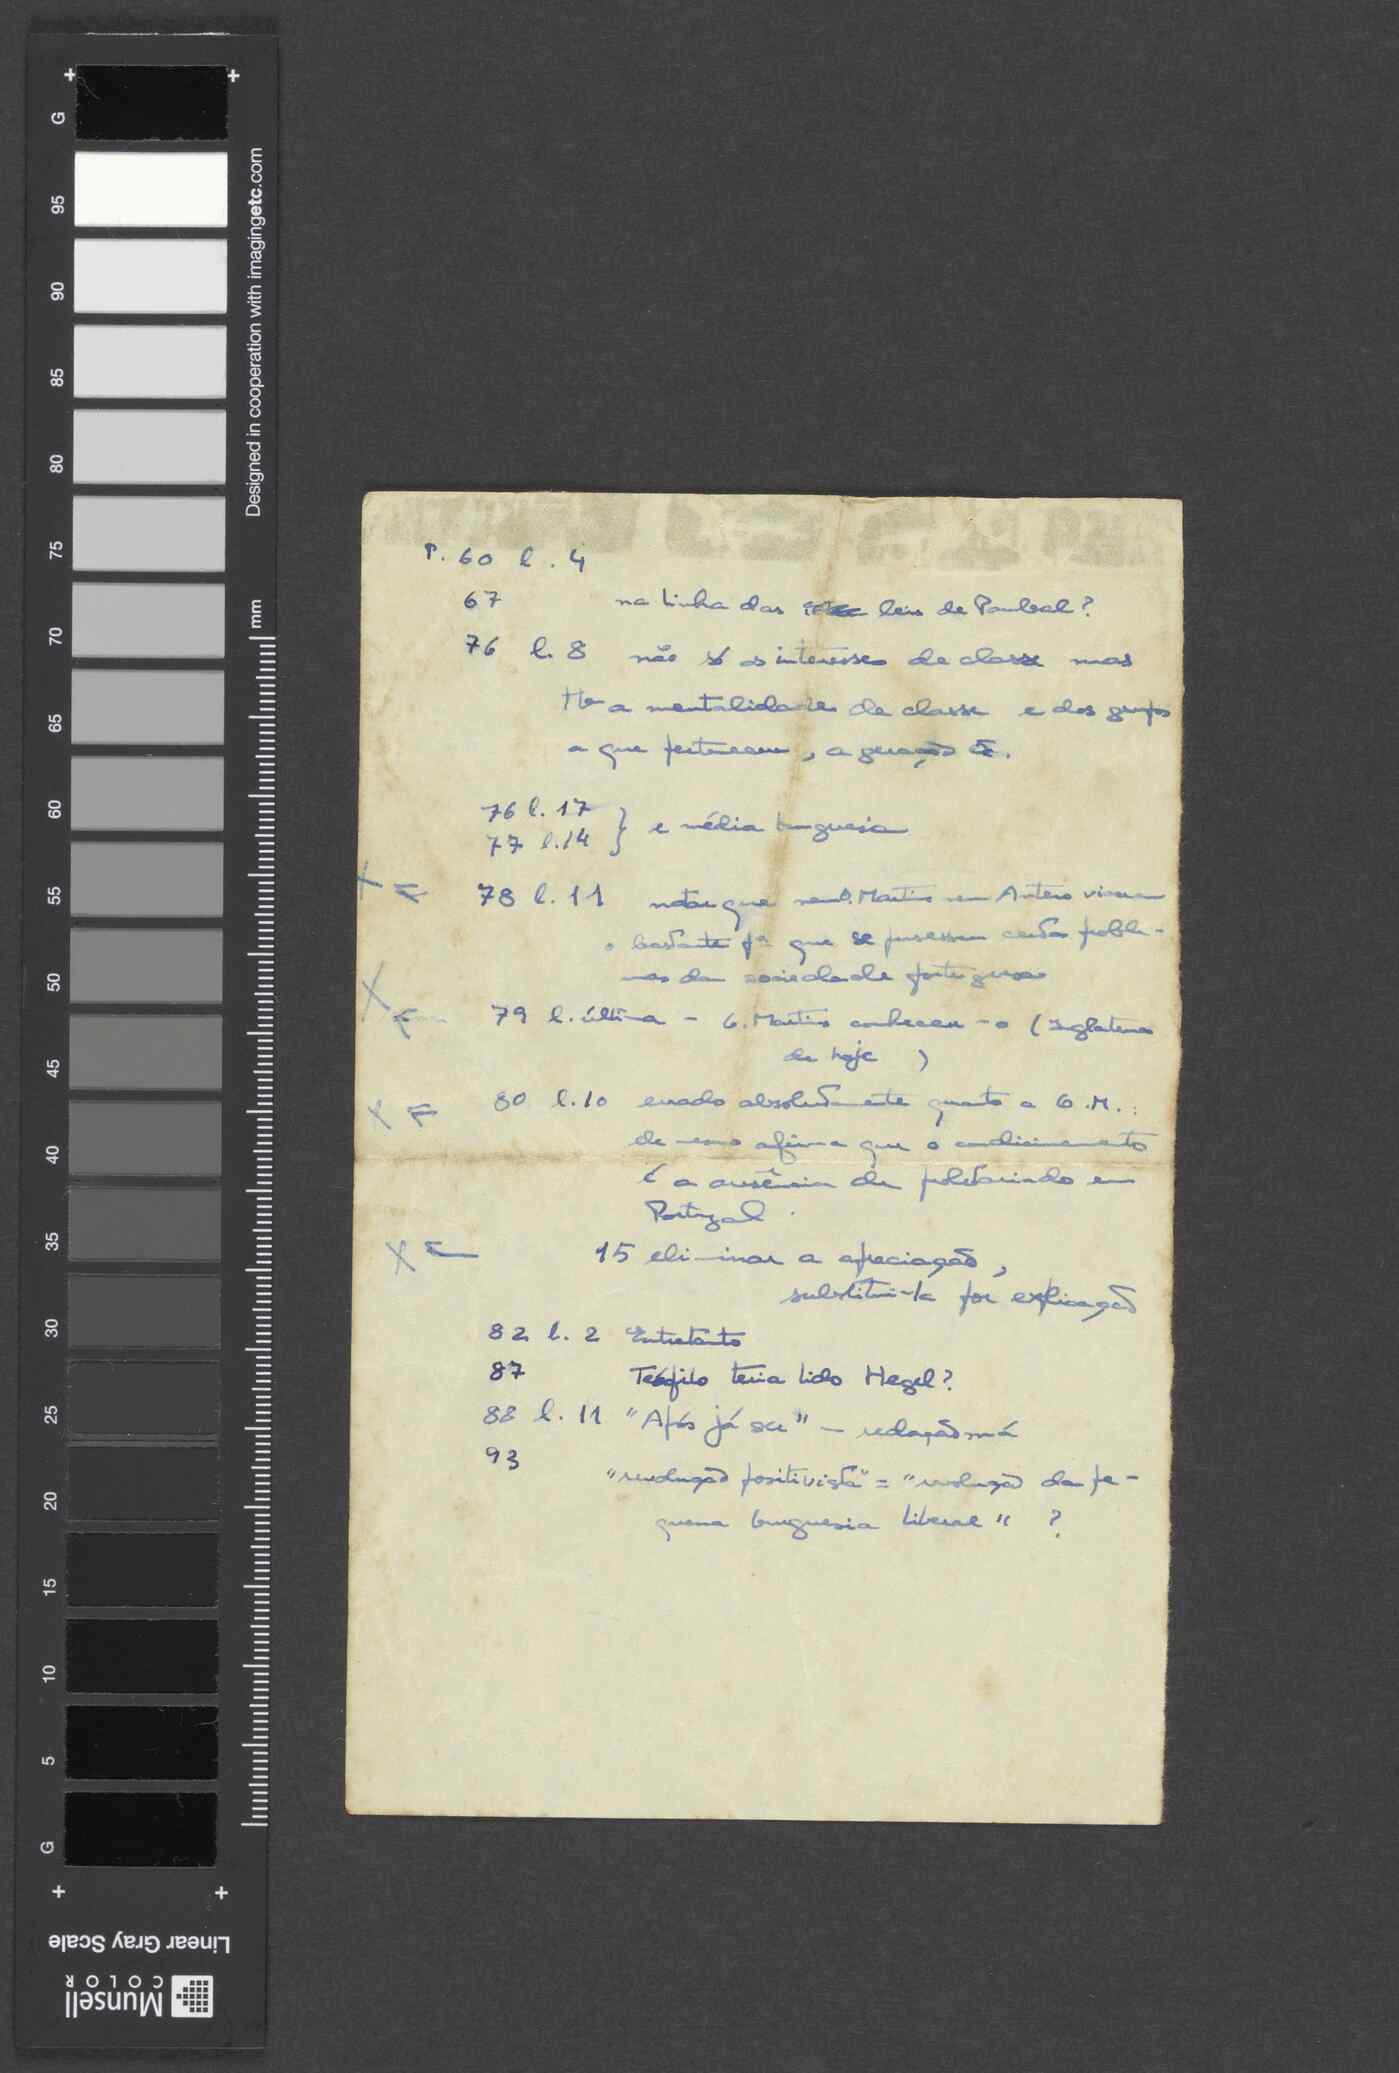 P. 60 l. 4
67 na linha das leis de Pombal?
76 l. 8 não só os interesses de classe mas
tb a mentalidade de classe e dos grupos
a que pertencem, a geração
76 l. 17
77 l. 14 } e média burguesia
78 l. 11 notar que nem O. Martins nem Antero viveram
o bastante pª que se pusessem certos proble-
mas da sociedade portuguesa
79 l. última - O. Martins conheceu-o (Inglaterra
de hoje)
80 l. 10 errado absolutamente quanto a O. M.:
ele mesmo afirma que o condicionamento
é a ausência de proletariado em
Portugal.
15 eliminar a apreciação,
substituí-la por explicação
82 l. 2 Entretanto
87 Teófilo teria lido Hegel?
88 l. 11 "Após já ser" - redação má
93
"revolução positivista" = "revolução da pe-
quena burguesia liberal" ?
G
95
90
85
80
75
70
65
60
55
50
45
40
35
30
25
20
15
10
5
G
Designed in cooperation with imagingetc.com
mm
Linear Gray Scale
Munsell
COLOR